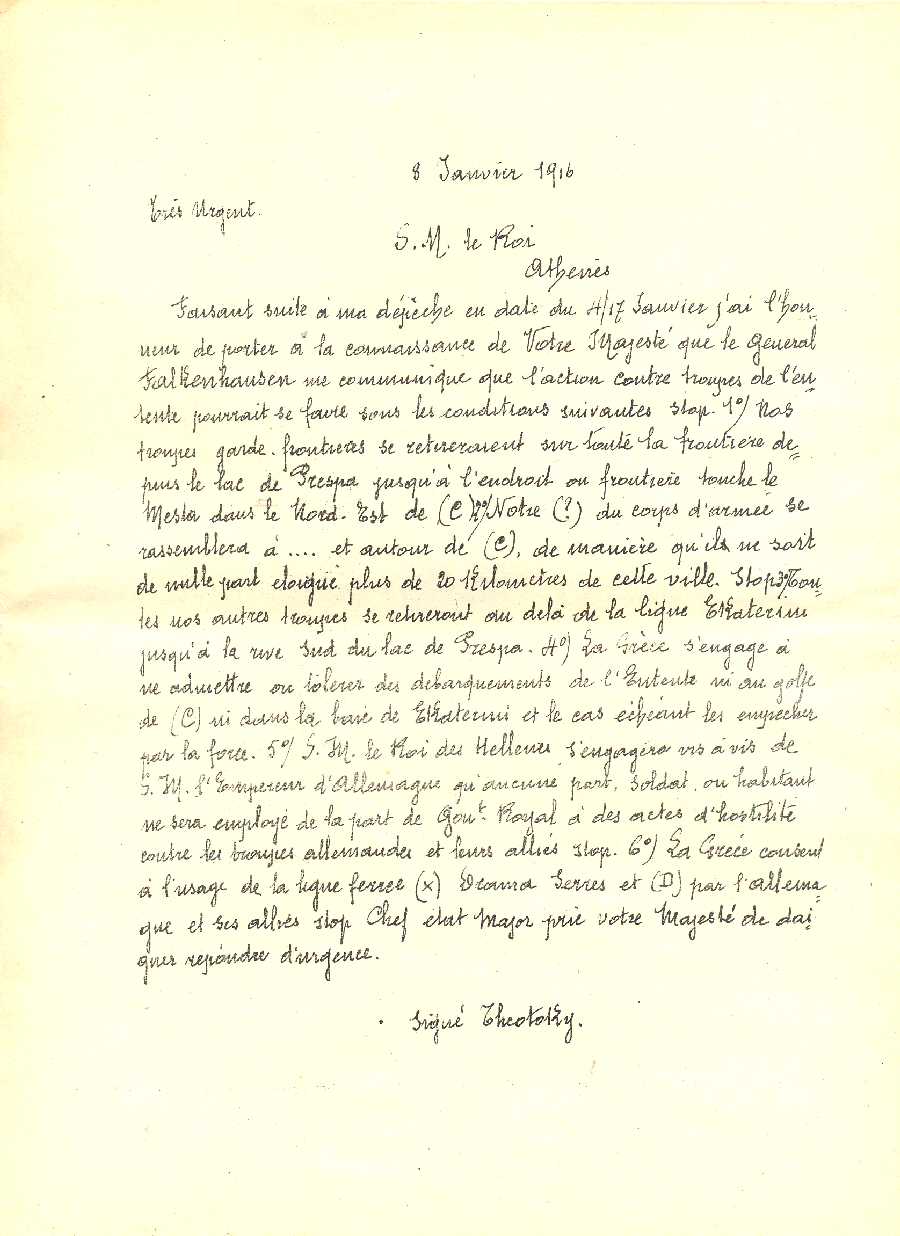 8 Janvier 1916
Très Urgent.
S. M. le Roi
Athenes
Faisant suite à ma dépêche en date du 4/17 Janvier j'ai l'hon=
neur de porter à la connaissance de Votre Majesté que le General
Falkenhausen me communique que l'action contre troupes de l'en=
tente pourrait se faire sous les conditions suivantes stop. 1º/ Nos
troupes garde-frontieres se retireraient sur toute la frontiere de=
puis le lac de Prespa jusqu'à l'endroit ou frontière touche le
Mesta dans le Nord-Est de (C) 2º/ Notre (?) du corps d'armée se
rassemblera à .... et autour de (C), de manière qu'ils ne soit
de nulle part eloigné plus de 20 Kilometres de cette ville. Stop 3º/ Tou=
tes nos autres troupes se retireront au delà de la ligne Ekaterini
jusqu'à la rive Sud du lac de Prespa. 4º/ La Grèce s'engage à
ne admettre ou tolerer des debarquements de l'Entente ni au golfe
de (C) ni dans la baie de Ekaterini et le cas echéant les empecher
par la force. 5º/ S. M. le Roi des Hellenes s'engagera vis à vis de
S. M. l'Empereur d'Allemagne qu'aucune part, soldat, ou habitant
ne sera employé de la part de Gouvt. Royal à des actes d'hostilité
contre les troupes allemandes et leurs alliés stop. 6º/ La Grèce consent
à l'usage de la ligne ferrée (x) Drama Serres et (D) par l'Allema=
gne et ses alliés stop Chef état Major prie votre Majesté de dai=
gner repondre d'urgence.
Signé Theotoky.